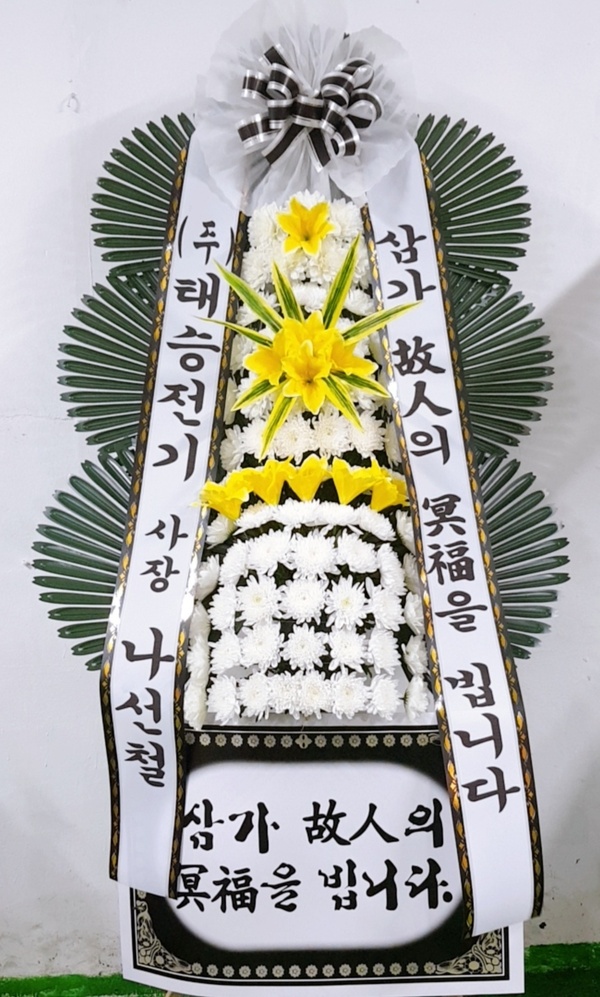 삼가 故人의 冥福을 빕니다
(주)태승전기 사장 나선철
삼가 故人의
冥福을 빕니다.